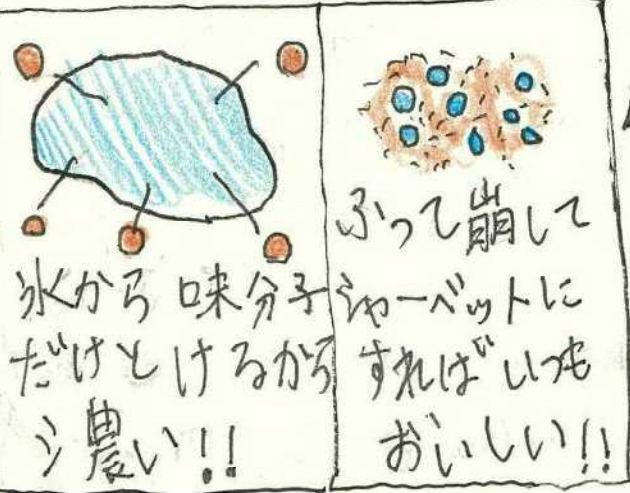 氷から味分子
だけとけるから
濃い!!
ふって崩して
シャーベットに
すればいつも
おいしい!!